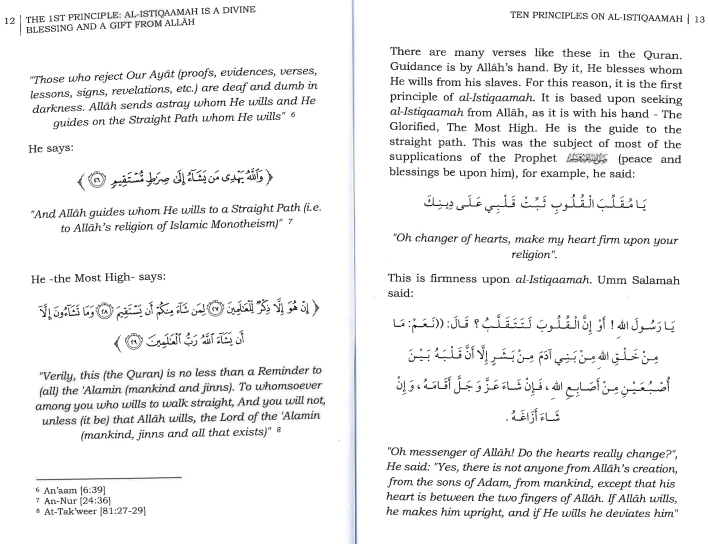 12 | THE 1ST PRINCIPLE: AL-ISTIQAAMAH IS A DIVINE
BLESSING AND A GIFT FROM ALLĀH
"Those who reject Our Ayât (proofs, evidences, verses,
lessons, signs, revelations, etc.) are deaf and dumb in
darkness. Allâh sends astray whom He wills and He
guides on the Straight Path whom He wills" 6
He says:
﴿ وَٱللَّهُ يَهْدِى مَن يَشَآءُ إِلَىٰ صِرَٰطٍ مُّسْتَقِيمٍ ٤٦ ﴾
"And Allâh guides whom He wills to a Straight Path (i.e.
to Allâh's religion of Islamic Monotheism)" 7
He -the Most High- says:
﴿ إِنْ هُوَ إِلَّا ذِكْرٌ لِّلْعَٰلَمِينَ ٢٧ لِمَن شَآءَ مِنكُمْ أَن يَسْتَقِيمَ ٢٨ وَمَا تَشَآءُونَ إِلَّآ
أَن يَشَآءَ ٱللَّهُ رَبُّ ٱلْعَٰلَمِينَ ٢٩ ﴾
"Verily, this (the Quran) is no less than a Reminder to
(all) the 'Alamin (mankind and jinns). To whomsoever
among you who wills to walk straight, And you will not,
unless (it be) that Allâh wills, the Lord of the 'Alamin
(mankind, jinns and all that exists)" 8
6 An'aam [6:39]
7 An-Nur [24:36]
8 At-Tak'weer [81:27-29]
TEN PRINCIPLES ON AL-ISTIQAAMAH | 13
There are many verses like these in the Quran.
Guidance is by Allâh's hand. By it, He blesses whom
He wills from his slaves. For this reason, it is the first
principle of al-Istiqaamah. It is based upon seeking
al-Istiqaamah from Allâh, as it is with his hand - The
Glorified, The Most High. He is the guide to the
straight path. This was the subject of most of the
supplications of the Prophet (peace and
blessings be upon him), for example, he said:
يَا مُقَلِّبَ الْقُلُوبِ ثَبِّتْ قَلْبِي عَلَى دِينِكَ
"Oh changer of hearts, make my heart firm upon your
religion".
This is firmness upon al-Istiqaamah. Umm Salamah
said:
يَا رَسُولَ اللهِ! أَوْ إِنَّ الْقُلُوبَ لَتَتَقَلَّبُ؟ قَالَ: ((نَعَمْ: مَا
مِنْ خَلْقِ اللهِ مِنْ بَنِي آدَمَ مِنْ بَشَرٍ إِلَّا أَنَّ قَلْبَهُ بَيْنَ
أُصْبُعَيْنِ مِنْ أَصَابِعِ اللهِ، فَإِنْ شَاءَ عَزَّ وَجَلَّ أَقَامَهُ، وَإِنْ
شَاءَ أَزَاغَهُ.
"Oh messenger of Allâh! Do the hearts really change?",
He said: "Yes, there is not anyone from Allâh's creation,
from the sons of Adam, from mankind, except that his
heart is between the two fingers of Allâh. If Allâh wills,
he makes him upright, and if He wills he deviates him"